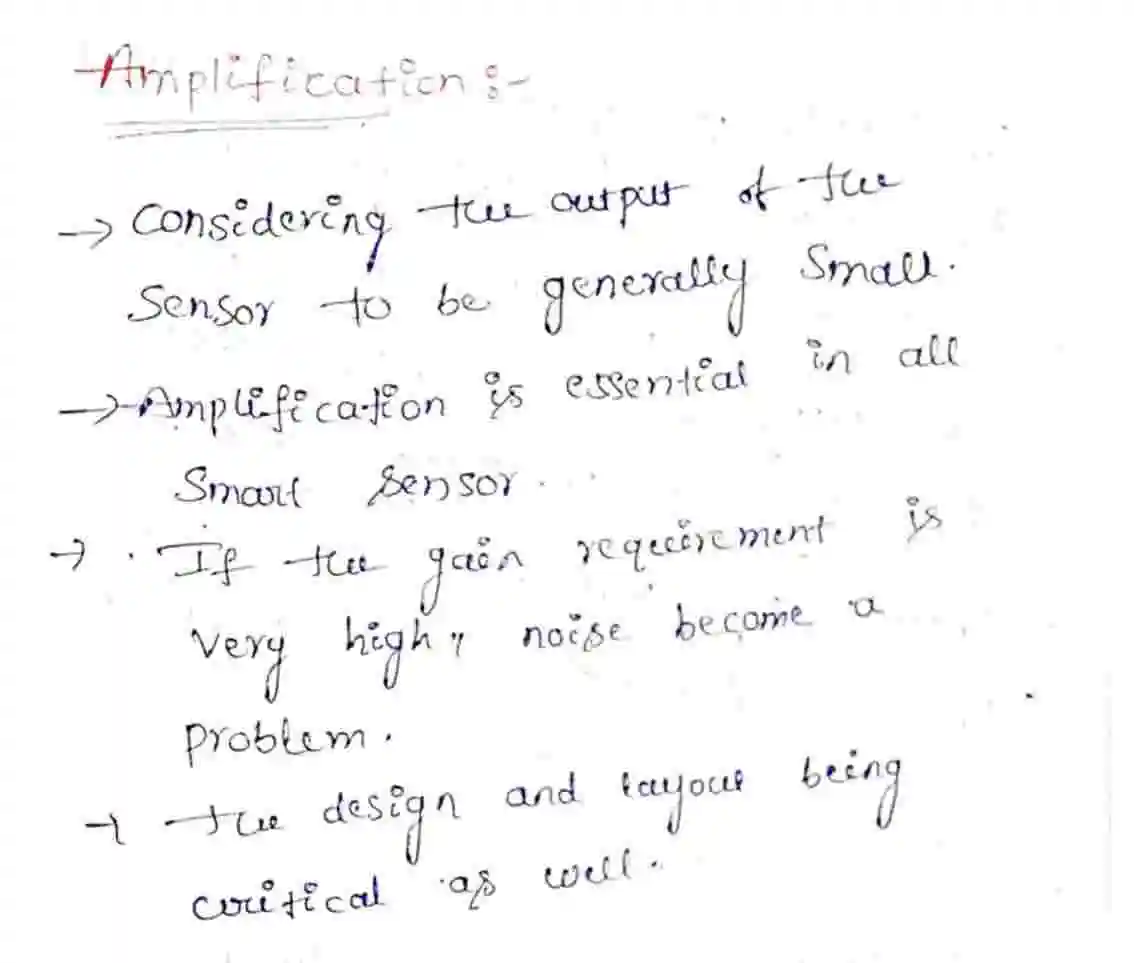 Amplification :-
→ Considering the output of the
Sensor to be generally Small.
→ Amplification is essential in all
Smart Sensor.
→ . If the gain requirement is
very high, noise become a
problem.
→ the design and layout being
critical as well.